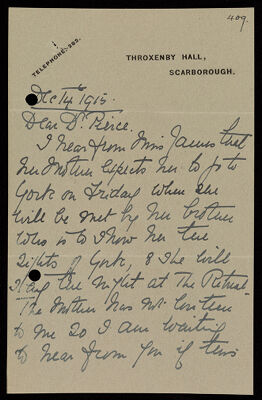 409.
TELEPHONE: 393.
THROXENBY HALL,
SCARBOROUGH.
Dec 14 1915.
Dear Dr. Pierce.
I hear from Miss James that
her Mother expects her to go to
York on Friday when she
will be met by her brother
who is to show her the
sights of York, & she will
stay the night at The Retreat.
The Mother has not written
to me so I am waiting
to hear from you if this